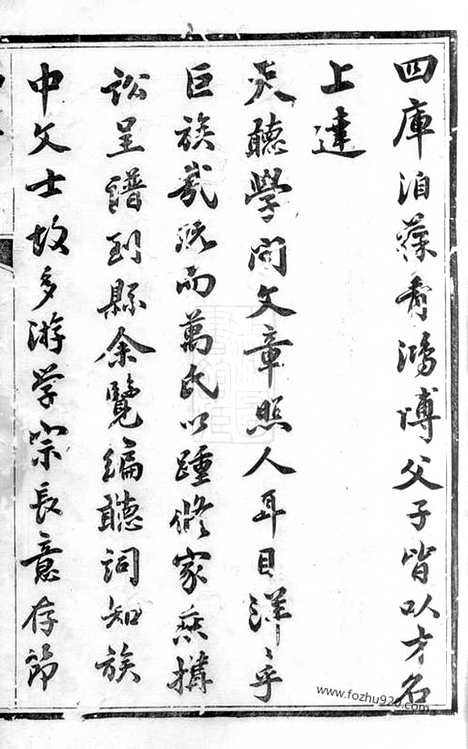 四庫洎葆青鴻博父子皆以才名
上達
天聽學問文章照人耳目洋〻乎
巨族哉既而萬氏以踵修家乘搆
訟呈譜到縣余覽編聽詞知族
中文士故多游学宗長意存節
www.fozhu920.com